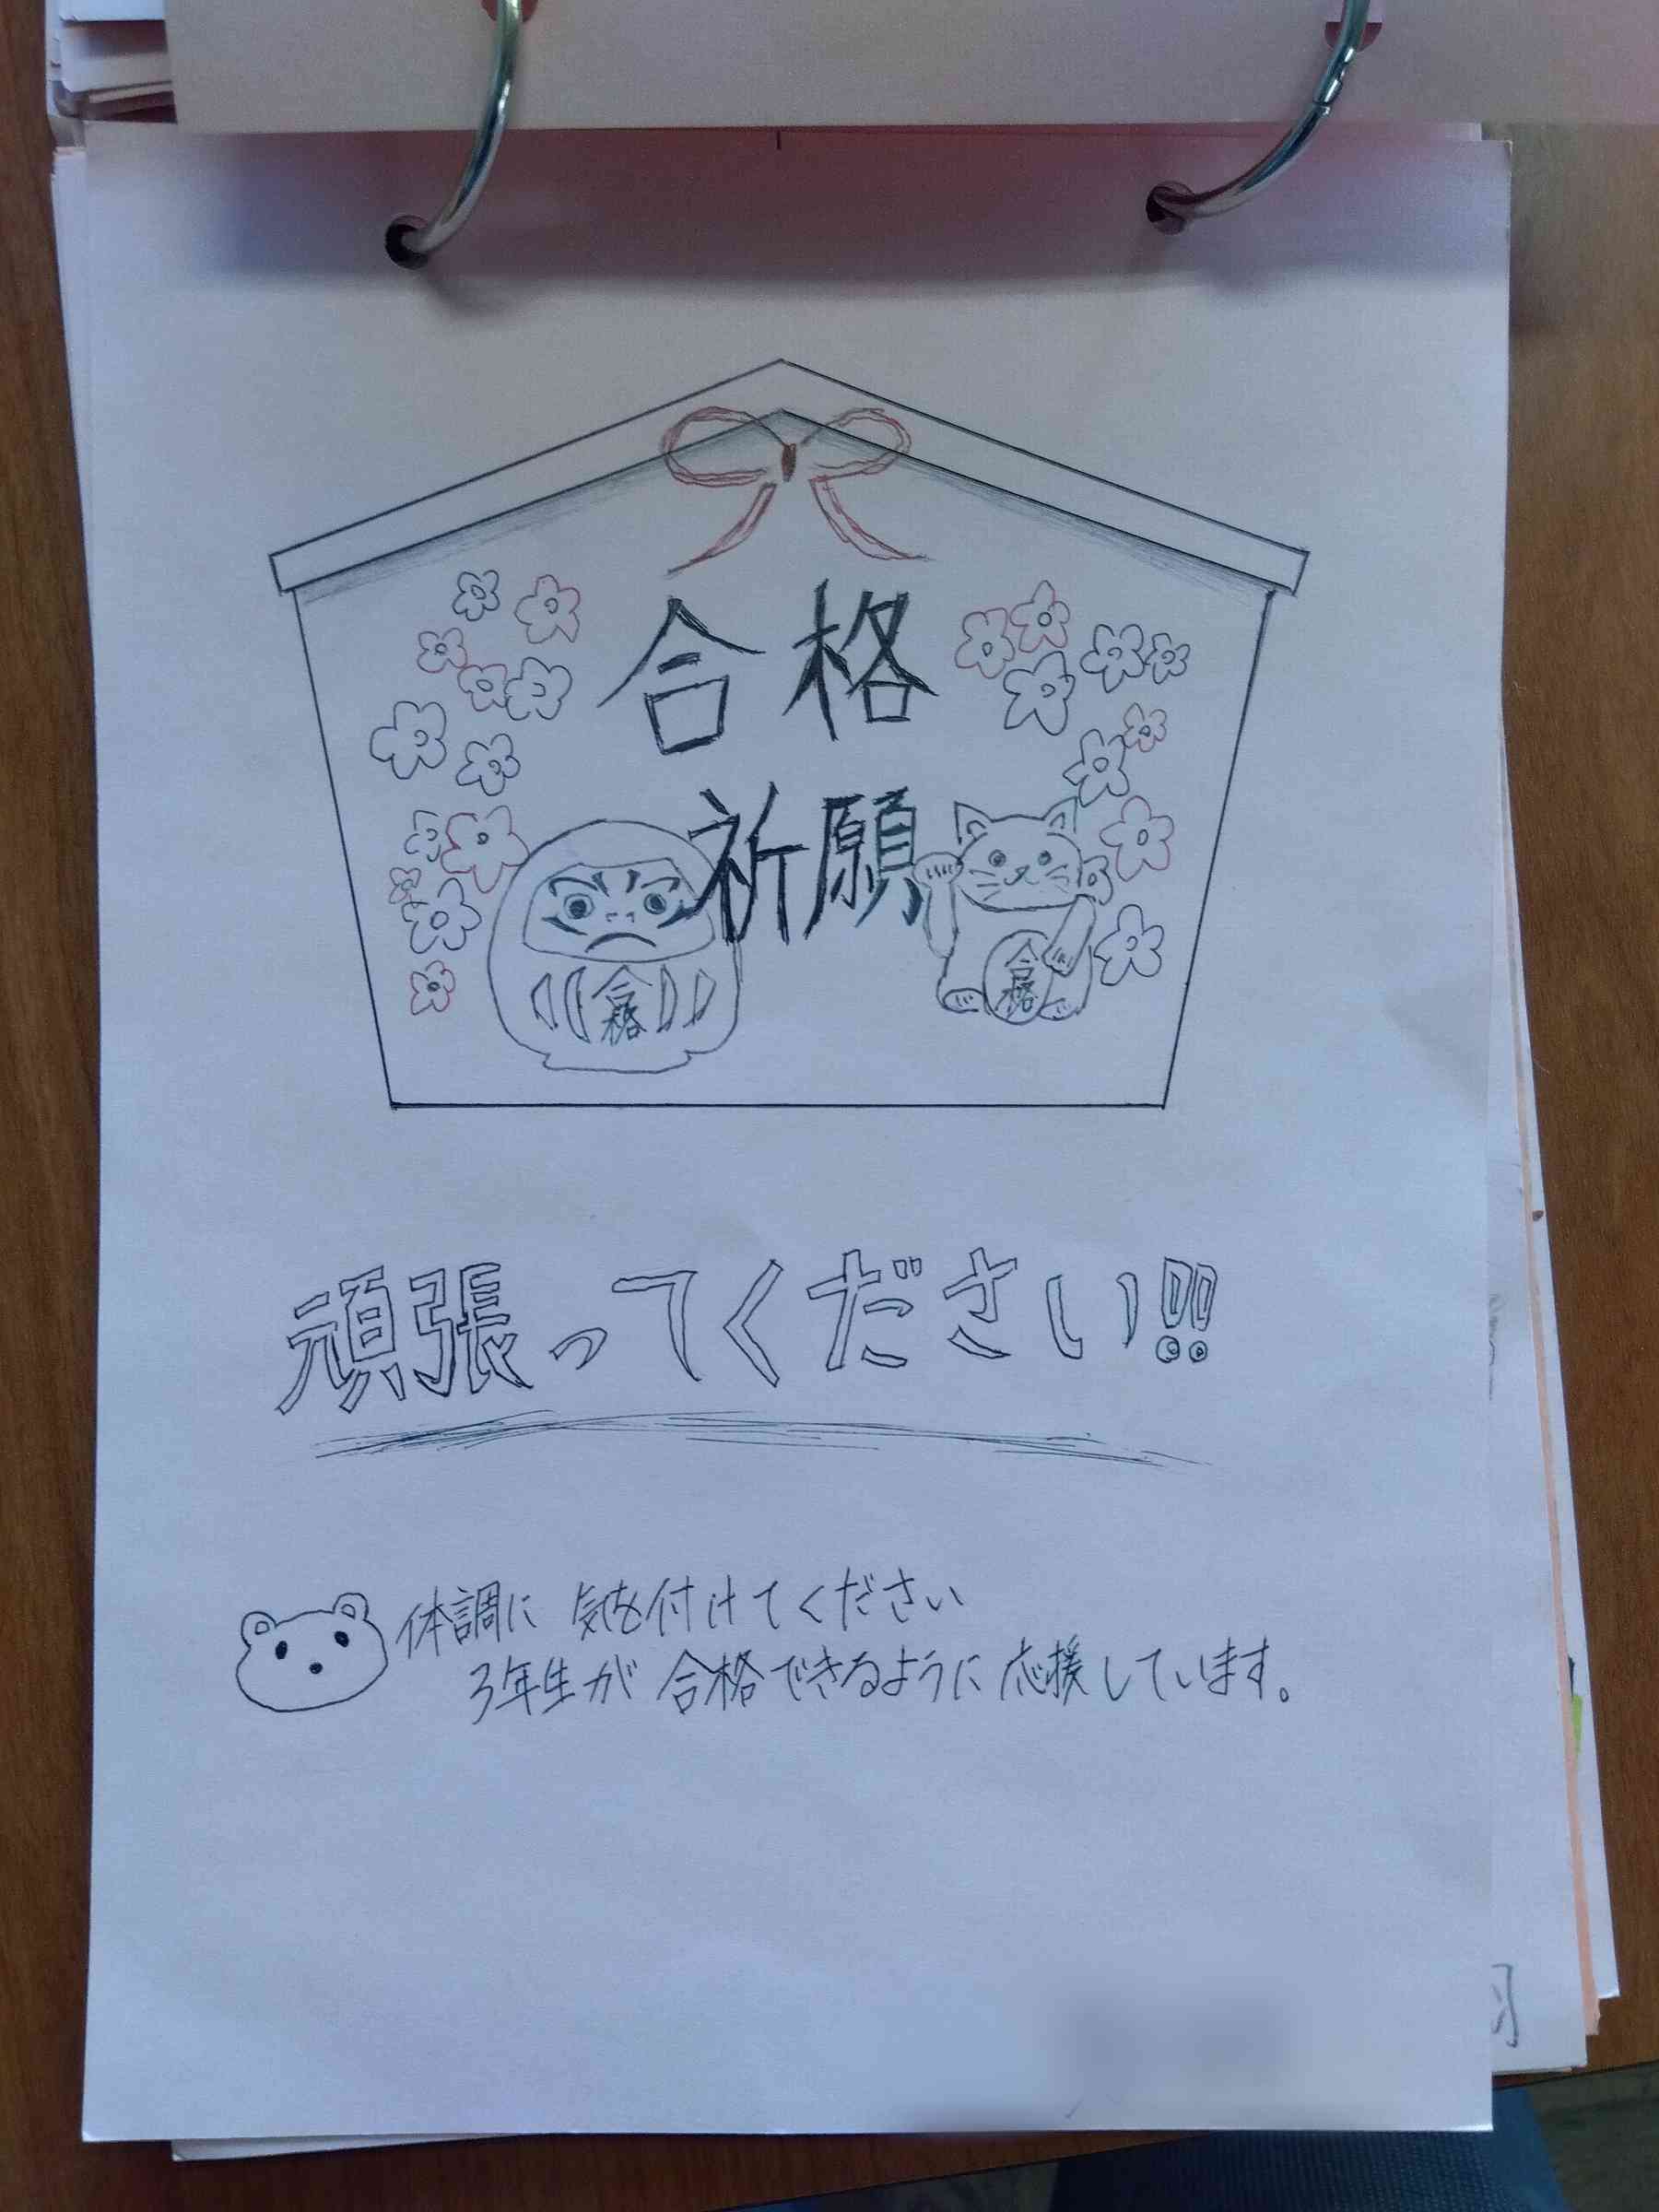 合格
祈願
合格
合格
頑張ってください!!
体調に気を付けてください
3年生が合格できるように応援しています。